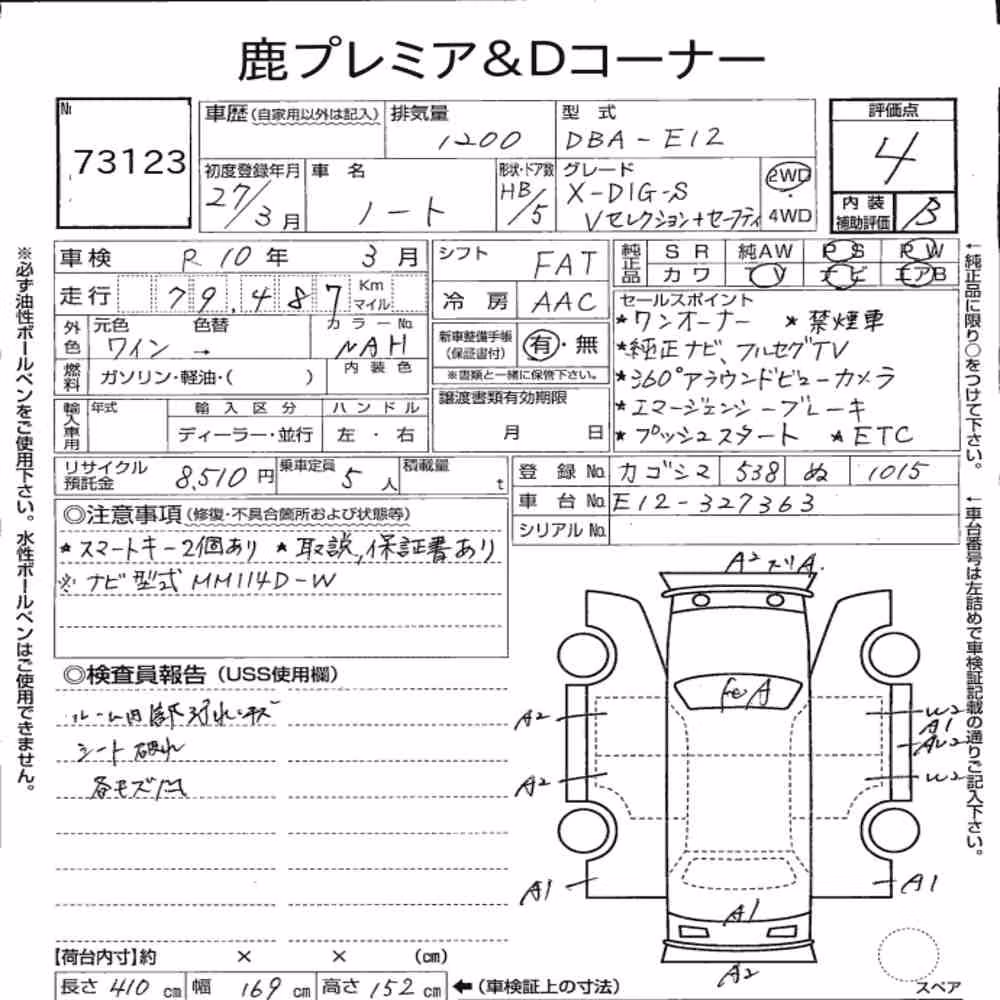 鹿プレミア&Dコーナー
№
73123
車歴(自家用以外は記入)
排気量
1200
型式
DBA-E12
評価点
4
初度登録年月
27/3月
車名
ノート
形状・ドア数
HB/5
グレード
X-DIG-S
Vセレクション+セーフティ
2WD
・
4WD
内装
補助評価
B
車検 R10年 3月
シフト
FAT
純正品
SR 純AW PS PW
カワ TV ナビ エアB
走行 79,487 Km マイル
冷房 AAC
セールスポイント
★ワンオーナー ★禁煙車
★純正ナビ、フルセグTV
★360°アラウンドビューカメラ
★エマージェンシーブレーキ
★プッシュスタート ★ETC
外色
元色 色替
ワイン →
カラーNo.
NAH
新車整備手帳
(保証書付)
有・無
※書類と一緒に保管下さい。
燃料
ガソリン・軽油・( )
内装色
譲渡書類有効期限
月 日
輸入車用
年式
輸入区分
ディーラー・並行
ハンドル
左・右
リサイクル預託金
8,510円
乗車定員
5人
積載量
t
登録No. カゴシマ 538 ぬ 1015
車台No. E12-327363
シリアルNo.
◎注意事項(修復・不具合箇所および状態等)
★スマートキー2個あり ★取説,保証書あり
※ナビ型式 MM114D-W
◎検査員報告(USS使用欄)
シート破れ
A2 スリA.
A2
W2
A1
A2
W2
A1
A1
A1
A2
スペア
【荷台内寸】約 × × (cm)
長さ 410 cm 幅 169 cm 高さ 152 cm ←(車検証上の寸法)
※必ず油性ボールペンをご使用下さい。水性ボールペンはご使用できません。
←純正品に限り○をつけて下さい。
←車台番号は左詰めで車検証記載の通りご記入下さい。